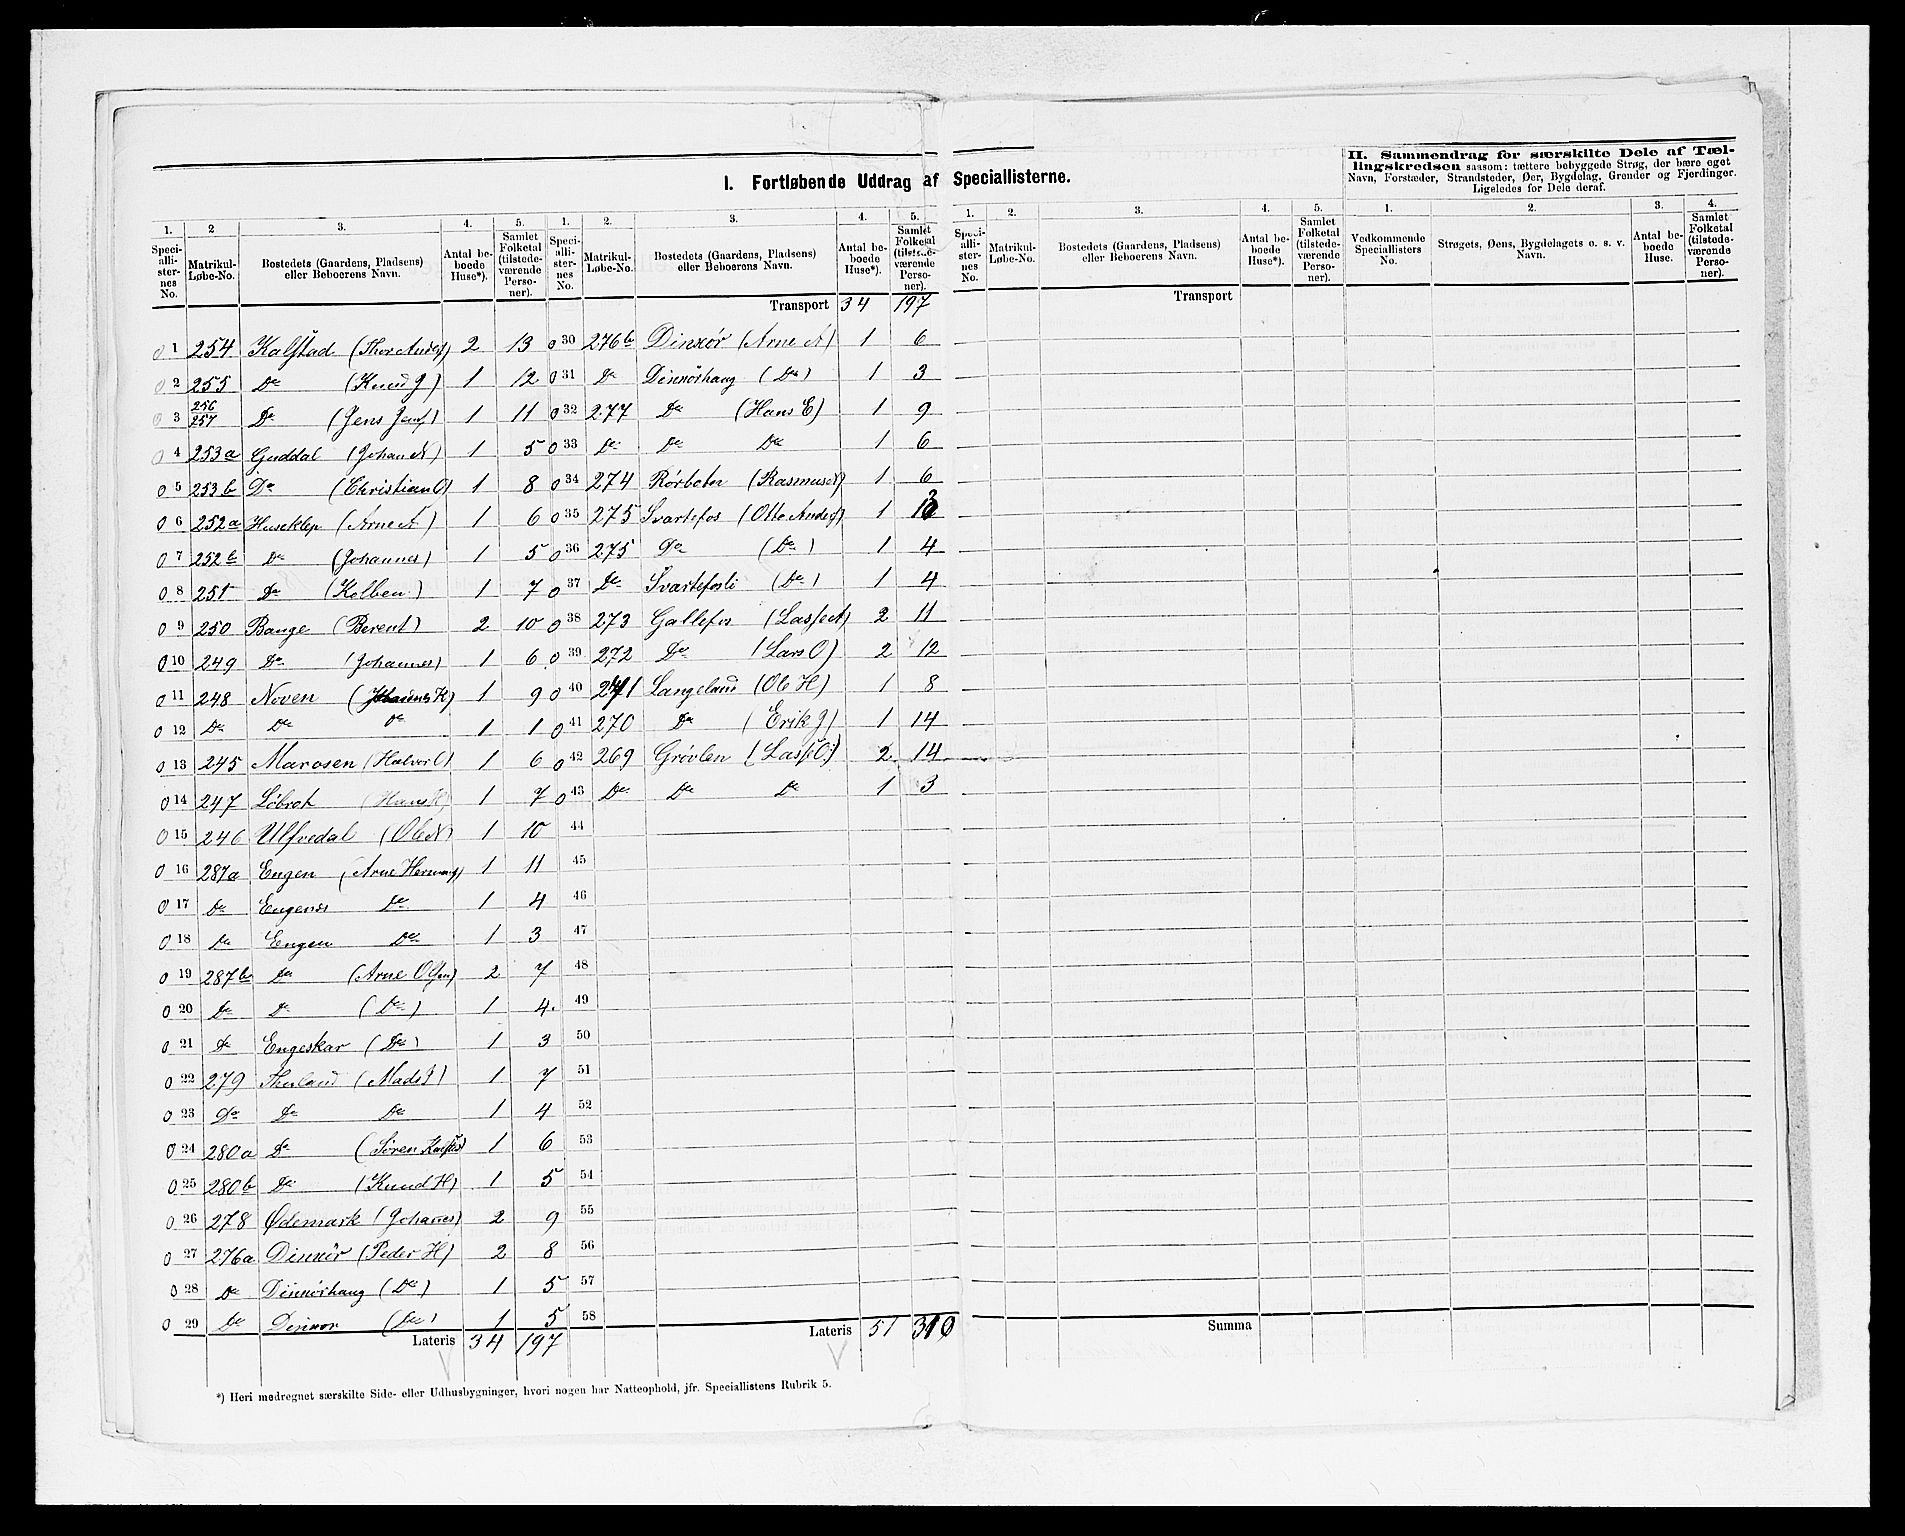 I. Fortløbende Uddrag af Speciallisterne.
II. Sammendrag for særskilte Dele af Tællingskredsen saasom: tættere bebyggede Strøg, der bære eget
Navn, Forstæder, Strandsteder, Øer, Bygdelag, Grender og Fjerdinger.
Ligeledes for Dele deraf.
1. 2 3. 4. 5. 1. 2. 3. 4. 5. 1. 2. 3. 4. 5. 1. 2. 3. 4.
Speciallisternes No. Matrikul-Løbe-No. Bostedets (Gaardens, Pladsens) eller Beboerens Navn. Antal beboede Huse*). Samlet Folketal (tilstedeværende Personer).
Speciallisternes No. Matrikul-Løbe-No. Bostedets (Gaardens, Pladsens) eller Beboerens Navn. Antal beboede Huse*). Samlet Folketal (tilstedeværende Personer).
Speciallisternes No. Matrikul-Løbe-No. Bostedets (Gaardens, Pladsens) eller Beboerens Navn. Antal beboede Huse*). Samlet Folketal (tilstedeværende Personer).
Vedkommende Speciallisters No. Strøgets, Øens, Bygdelagets o. s. v. Navn. Antal beboede Huse. Samlet Folketal (tilstedeværende Personer).
0 1 254 Kalstad (Thor Anders) 2 13
0 2 255 Do (Knud J) 1 12
0 3 256/257 Do (Jens Jens) 1 11
0 4 253a Guddal (Johan A) 1 5
0 5 253b Do (Christian O) 1 8
0 6 252a Huseklep (Arne A) 1 6
0 7 252b Do (Johannes) 1 5
0 8 251 Do (Kolben) 1 7
0 9 250 Bauge (Berent) 2 10
0 10 249 Do (Johannes) 1 6
0 11 248 Noven (Johannes K) 1 9
0 12 Do Do Do 1 1
0 13 245 Marosen (Halvor O) 1 6
0 14 247 Löbrot (Hans K) 1 7
0 15 246 Ulfvedal (Ole A) 1 10
0 16 287a Engen (Arne Hermans) 1 11
0 17 Do Engenes Do 1 4
0 18 Do Engen Do 1 3
0 19 287b Do (Arne Olsen) 2 7
0 20 Do Do (Do) 1 4.
0 21 Do Engeskar (Do) 1 3
0 22 279 (Mads J) 1 7
0 23 Do Do Do 1 4
0 24 280a Do (Sören) 1 6
0 25 280b Do (Knud H) 1 5
0 26 278 Ødemark (Johannes) 2 9
0 27 276a Dinnör (Peder H) 2 8
0 28 Do Dinnörhaug (Do) 1 5
0 29 Do Dinnör (Do) 1 5
Lateris 34 197
Transport 34 197
0 30 276b Dinnör (Arne A) 1 6
0 31 Do Dinnörhaug (Do) 1 3
0 32 277 Do (Hans E) 1 9
0 33 Do Do Do 1 6
0 34 274 Rörbotn (Rasmus A) 1 6
0 35 275 Svartefos (Otto Anders) 1 13
0 36 275 Do (Do) 1 4
0 37 Do Svartefosli (Do) 1 4
0 38 273 Gallefos (Lasse A) 2 11
0 39 272 Do (Lars O) 2 12
0 40 271 Langeland (Ole H) 1 8
0 41 270 Do (Erik J) 1 14
0 42 269 Grövlen (Lasse O) 2 14
0 43 Do Do Do 1 3
44
45
46
47
48
49
50
51
52
53
54
55
56
57
58
Lateris 51 310
Transport
Summa
*) Heri medregnet særskilte Side- eller Udhusbygninger, hvori nogen har Natteophold, jfr. Speciallistens Rubrik 5.